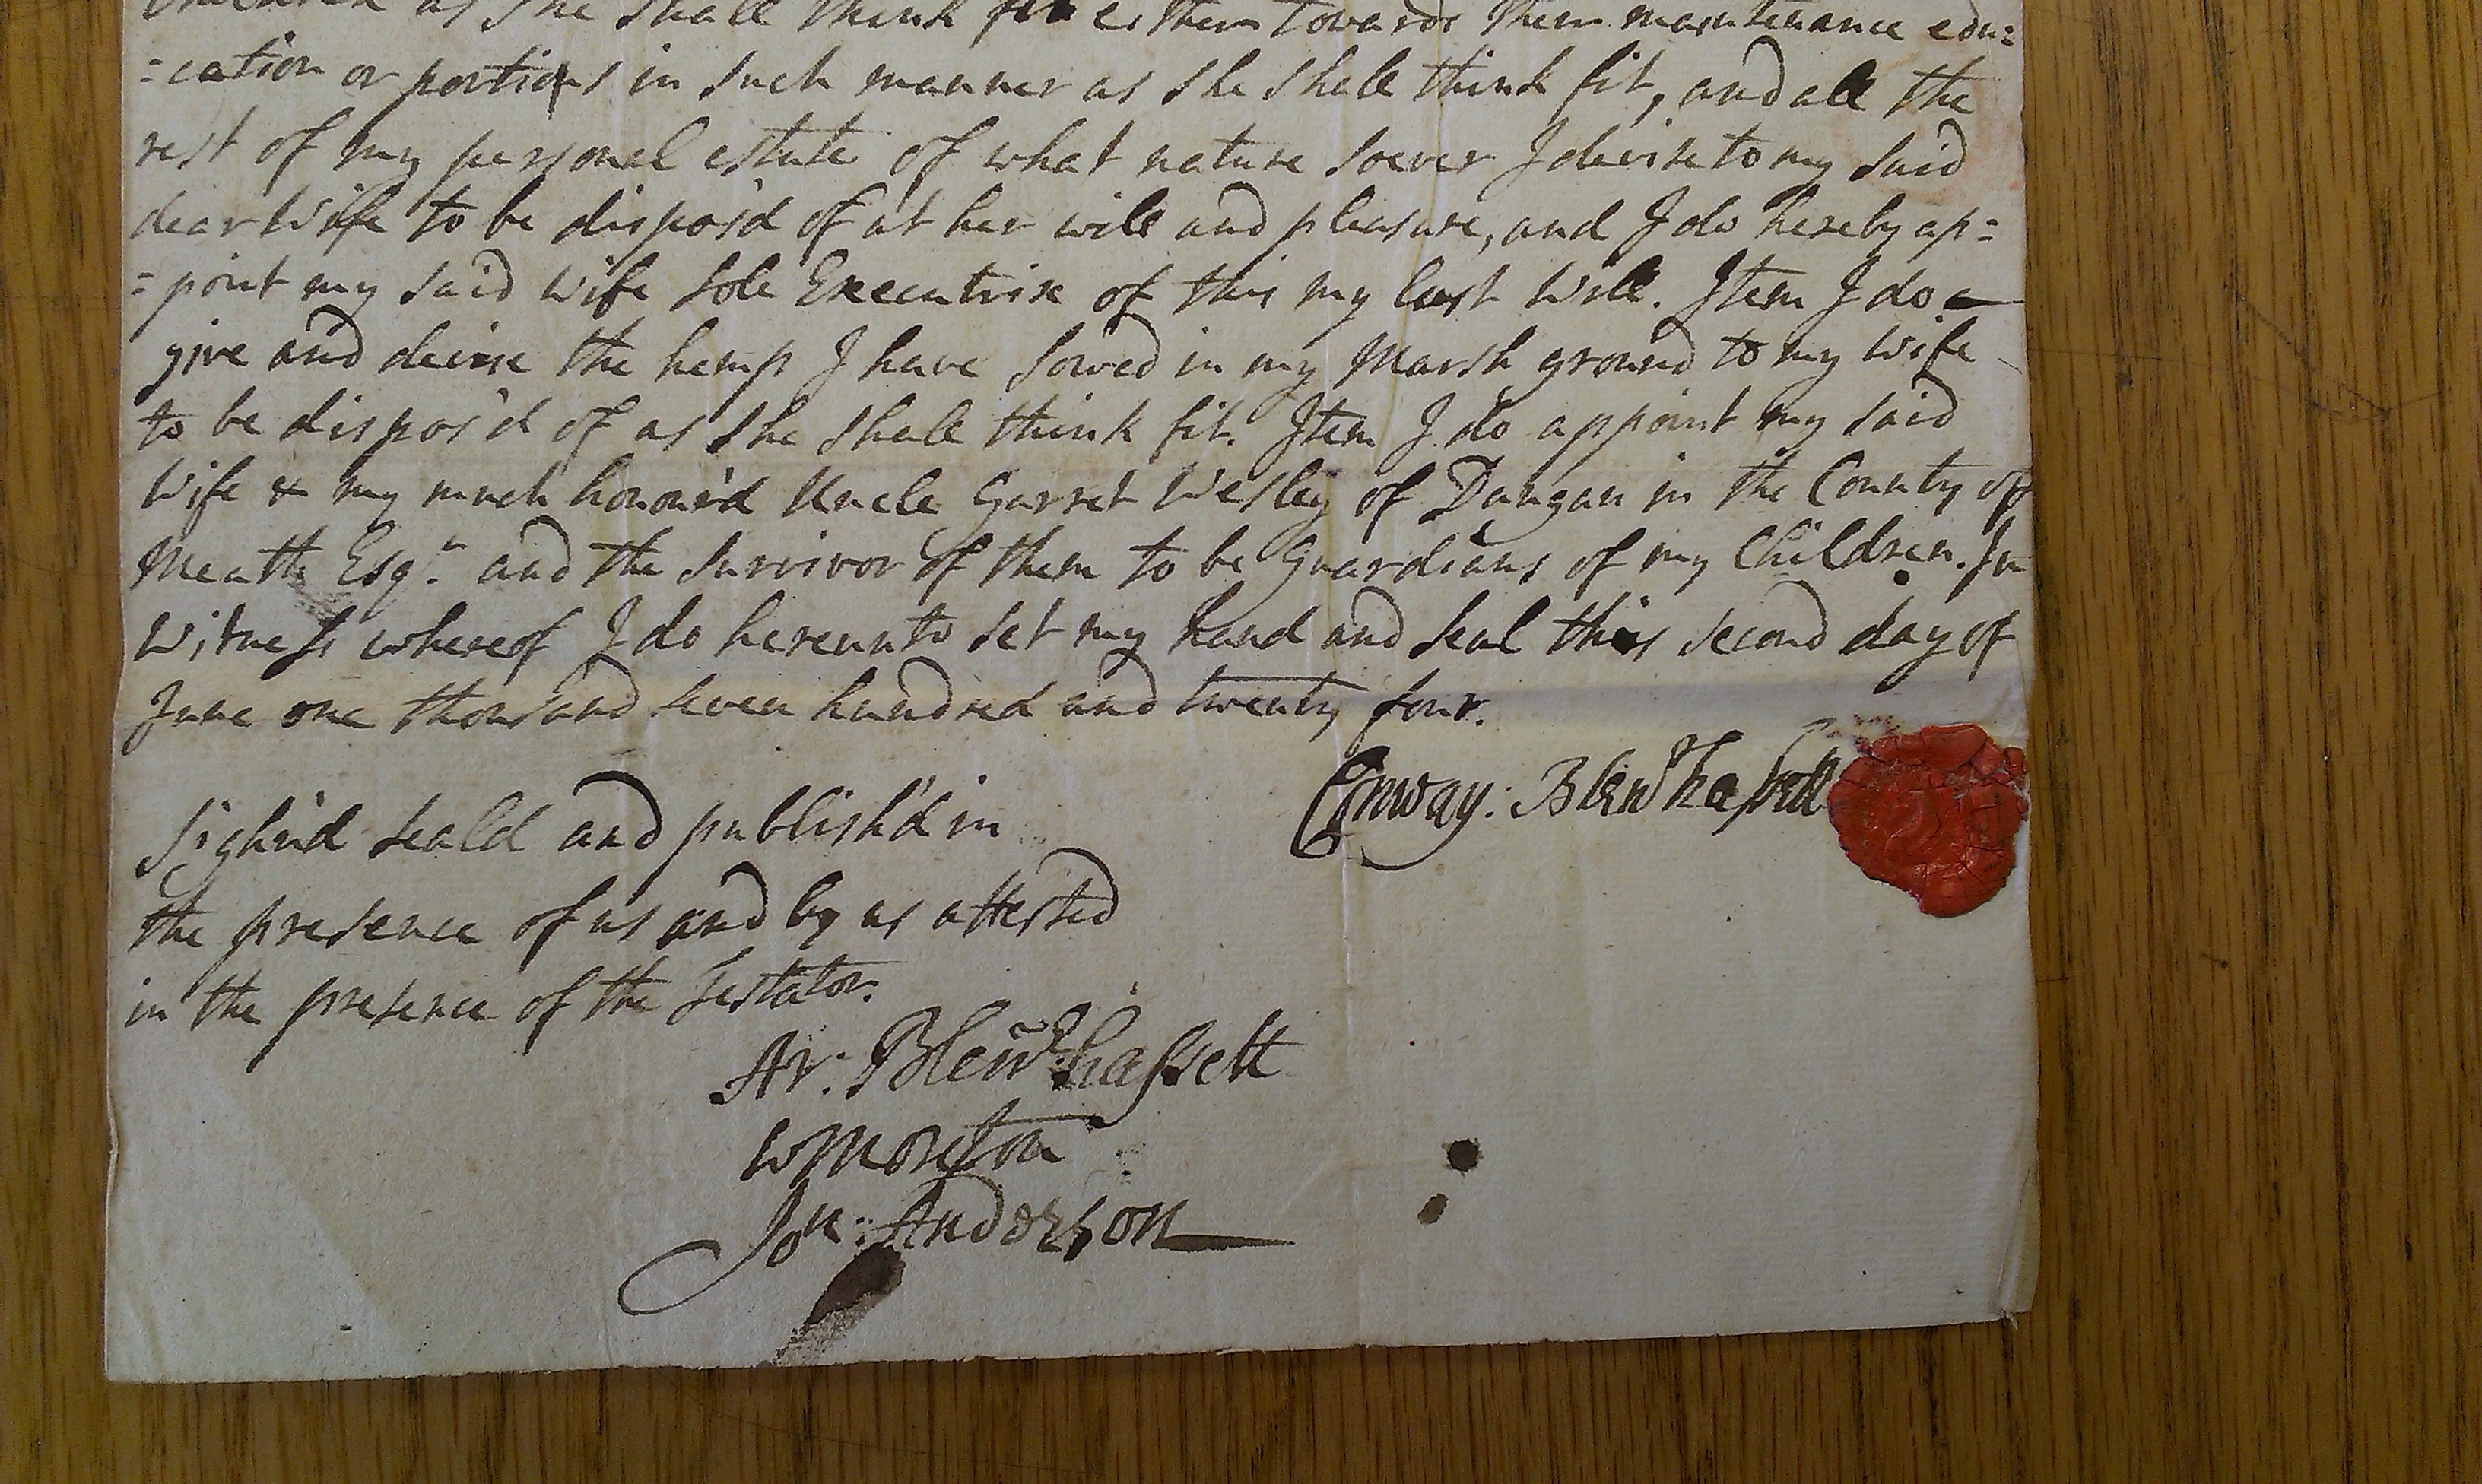 Children as she shall think fit either towards their maintenance edu=
=cation or portions in such manner as she shall think fit, and all the
rest of my personal estate of what nature soever I devise to my said
dear Wife to be dispos'd of at her will and pleasure, and I do hereby ap=
=point my said Wife sole Executrix of this my last Will. Item I do
give and devise the hemp I have sowed in my Marsh ground to my Wife
to be dispos'd of as she shall think fit. Item I do appoint my said
Wife & my much honour'd Uncle Garret Wesley of Dangan in the County of
Meath Esqr. and the survivor of them to be Guardians of my Children. In
Witness whereof I do hereunto set my hand and seal this second day of
June one thousand seven hundred and twenty four.
Conway: Blenerhassett
Sign'd seald and publish'd in
the presence of us and by us attested
in the presence of the Testator.
Ar: Blenerhassett
W Morton
Jon: Anderson